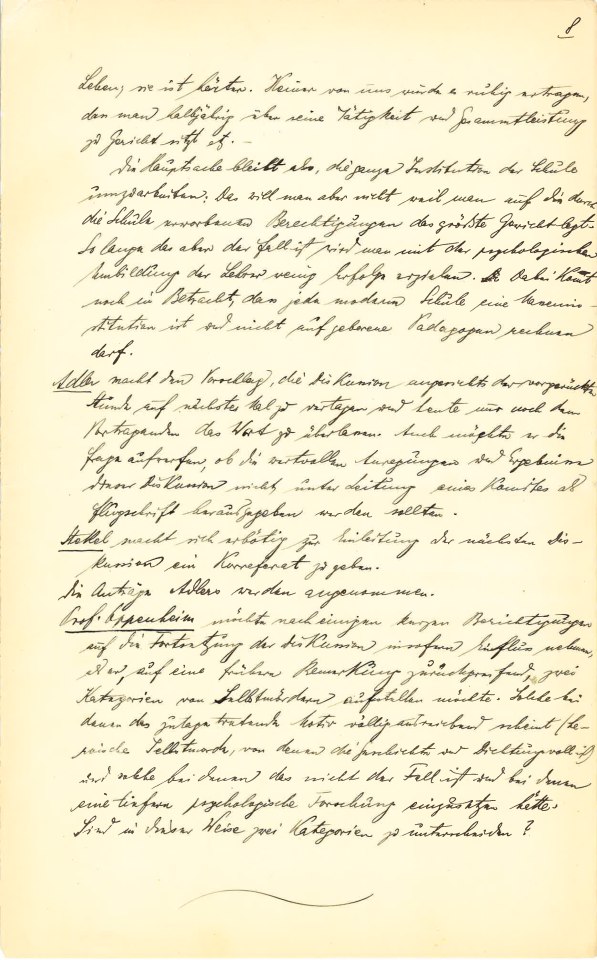 8
Leben; sie ist härter. Keiner von uns würde es ruhig ertragen,
dass man halbjährig über seine Tätigkeit und Gesammtleistung
zu Gericht sitzt etc. –
Die Hauptsache bleibt also, die ganze Institution der Schule
umzuarbeiten. Das will man aber nicht weil man auf die durch
die Schule erworbenen Berechtigungen das größte Gewicht legt.
So lange das aber der Fall ist wird man mit der psychologischen
Umbildung der Lehrer wenig Erfolge erzielen. Dabei kommt
noch in Betracht, dass jede moderne Schule eine Massenin-
stitution ist und nicht auf geborene Pädagogen rechnen
darf.
Adler macht den Vorschlag, die Diskussion angesichts der vorgerückten
Stunde auf nächstes Mal zu vertagen und heute nur noch dem
Vortragenden das Wort zu überlassen. Auch möchte er die
Frage aufwerfen, ob die wertvollen Anregungen und Ergebnisse
dieser Diskussion nicht unter Leitung eines Komitees als
Flugschrift herausgegeben werden sollten.
Stekel macht sich erbötig zur Einleitung der nächsten Dis-
kussion ein Korreferat zu geben.
Die Anträge Adlers werden angenommen.
Prof. Oppenheim möchte nach einigen kurzen Berichtigungen
auf die Fortsetzung der Diskussion insofern Einfluss nehmen,
als er, auf eine frühere Bemerkung zurückgreifend, zwei
Kategorien von Selbstmördern aufstellen möchte. Solche bei
denen das zutage tretende Motiv völlig ausreichend scheint (he-
roische Selbstmorde, von denen die Geschichte und Dichtung voll ist)
und solche bei denen das nicht der Fall ist und bei denen
eine tiefere psychologische Forschung einzusetzen hätte.
Sind in dieser Weise zwei Kategorien zu unterscheiden?